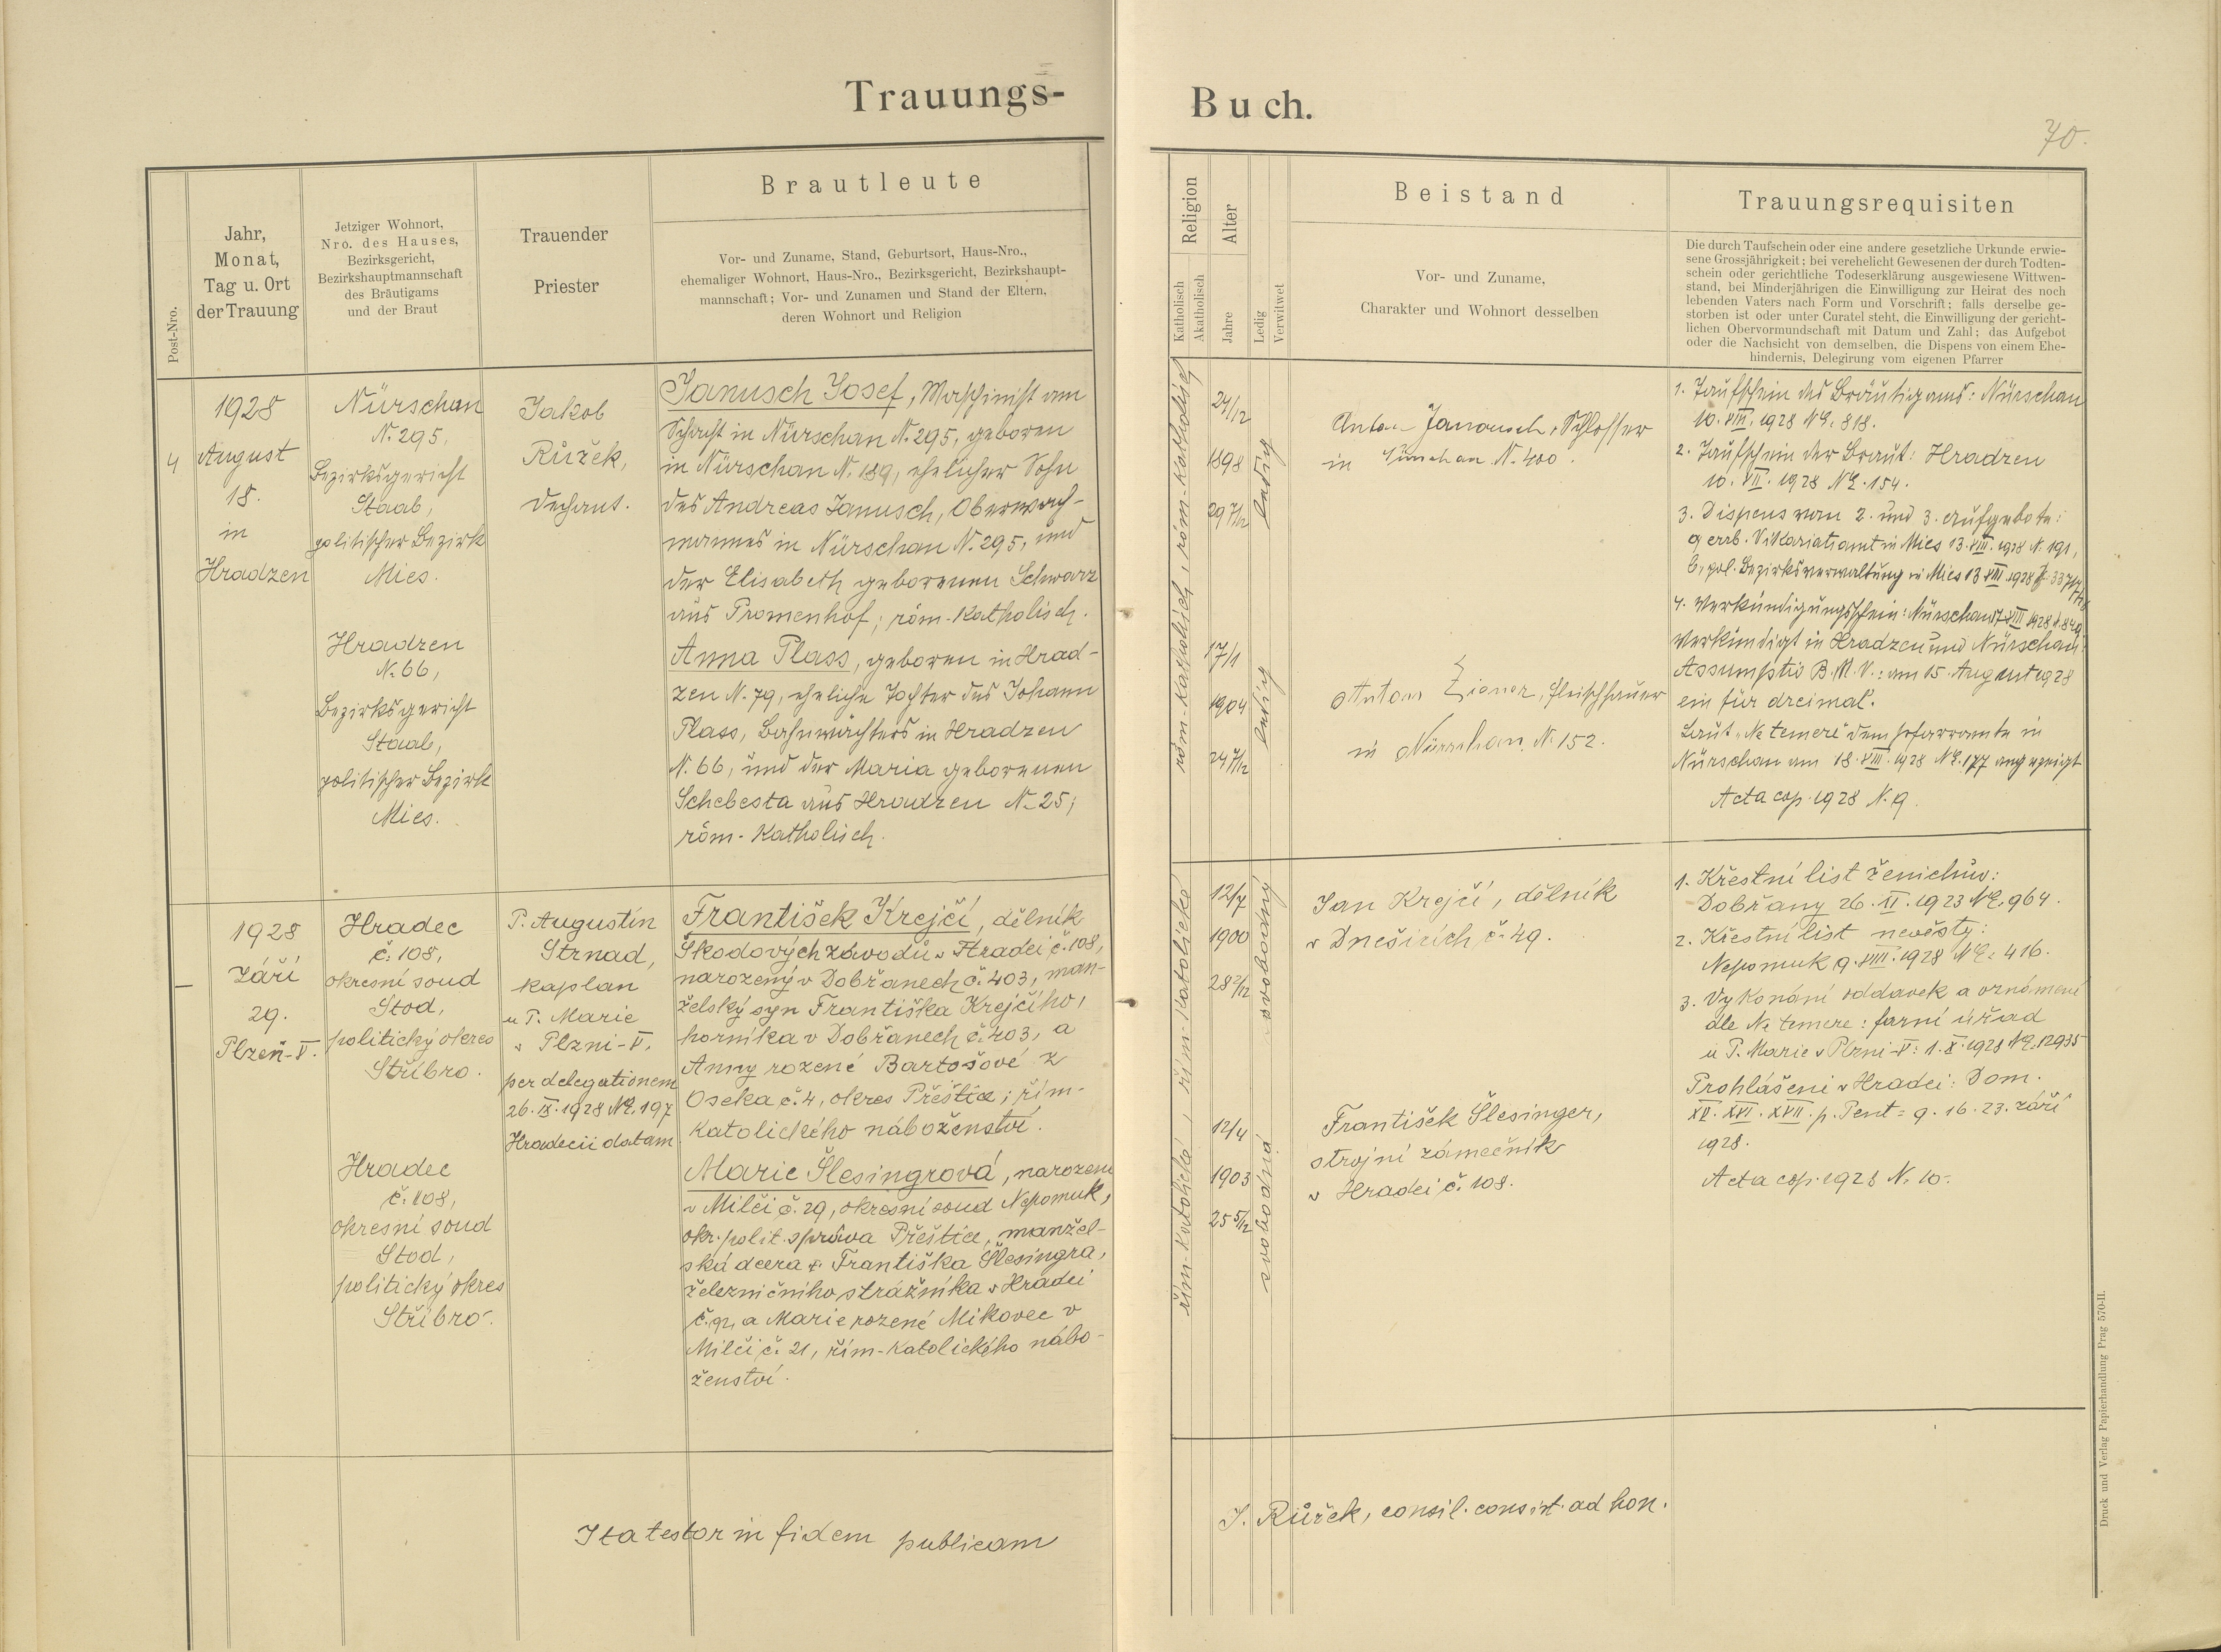 Trauungs-
Buch.
70.
Post-Nro.
Jahr,
Monat,
Tag u. Ort
der Trauung
Jetziger Wohnort,
Nro. des Hauses,
Bezirksgericht,
Bezirkshauptmannschaft
des Bräutigams
und der Braut
Trauender
Priester
Brautleute
Vor- und Zuname, Stand, Geburtsort, Haus-Nro.,
ehemaliger Wohnort, Haus-Nro., Bezirksgericht, Bezirkshaupt-
mannschaft; Vor- und Zunamen und Stand der Eltern,
deren Wohnort und Religion
Religion
Katholisch
Akatholisch
Alter
Jahre
Ledig
Verwitwet
Beistand
Vor- und Zuname,
Charakter und Wohnort desselben
Trauungsrequisiten
Die durch Taufschein oder eine andere gesetzliche Urkunde erwie-
sene Grossjährigkeit; bei verehelicht Gewesenen der durch Todten-
schein oder gerichtliche Todeserklärung ausgewiesene Wittwen-
stand, bei Minderjährigen die Einwilligung zur Heirat des noch
lebenden Vaters nach Form und Vorschrift; falls derselbe ge-
storben ist oder unter Curatel steht, die Einwilligung der gericht-
lichen Obervormundschaft mit Datum und Zahl; das Aufgebot
oder die Nachsicht von demselben, die Dispens von einem Ehe-
hindernis, Delegirung vom eigenen Pfarrer
4
1928
August
18.
in
Hradzen
Nürschan
N. 295,
Bezirksgericht
Staab,
politischer Bezirk
Mies.
Hradzen
N. 66,
Bezirksgericht
Staab,
politischer Bezirk
Mies.
Jakob
Růžek,
Dechant.
Janusch Josef, Maschinist am
Schacht in Nürschan N. 295, geboren
in Nürschan N. 189, ehelicher Sohn
des Andreas Janusch, Oberwach-
mannes in Nürschan N. 295, und
der Elisabeth geborenen Schwarz
aus Promenhof; röm-katholisch.
Anna Plass, geboren in Hrad-
zen N. 79, eheliche Tochter des Johann
Plass, Bahnwächters in Hradzen
N. 66, und der Maria geborenen
Schebesta aus Hradzen N. 25;
röm-katholisch.
röm-katholisch, röm-katholisch
24/12
1898
29 7/12
ledig
17/1
1904
24 7/12
ledig
Anton Janousch, Schlosser
in Nürschan N. 400.
Anton, Fleischhauer
in Nürschan N. 152.
1. Taufschein des Bräutigams: Nürschan
10. VIII. 1928 NE. 818.
2. Taufschein der Braut: Hradzen
10. VII. 1928 NE. 154.
3. Dispens vom 2. und 3. Aufgebote:
a, erzb. Vikariatsamt in Mies 13. VIII. 1928 N. 191,
b, pol. Bezirksverwaltung in Mies 13 VIII. 1928
4. Verkündigungsschein: Nürschan VIII 1928
Verkündigt in Hradzen und Nürschan:
Assumptio B. M. V.: am 15. August 1928
ein für dreimal.
Laut "Ne temere" dem Pfarramte in
Nürschan am 18. VIII. 1928 NE. 177 angezeigt
Acta cop. 1928 N. 9.
—
1928
září
29.
Plzeň-V.
Hradec
č. 108,
okresní soud
Stod,
politický okres
Stříbro.
Hradec
č. 108,
okresní soud
Stod,
politický okres
Stříbro.
P. Augustin
Strnad,
kaplan
u P. Marie
v Plzni-V,
per delegationem
26. IX. 1928 NE. 197
Hradecii datam.
František Krejčí, dělník
Škodových závodů v Hradci č. 108,
narozený v Dobřanech č. 403, man-
želský syn Františka Krejčího,
horníka v Dobřanech č. 403, a
Anny rozené Bartošové z
Oseka č. 4, okres Přeštice; řím-
katolického náboženství.
Marie Šlesingrová, narozená
v Milči č. 29, okresní soud Nepomuk,
okr. polit. správa Přeštice, manžel-
ská dcera † Františka Šlesingra,
železničního strážníka v Hradci
č. 91, a Marie rozené Mikovec v
Milči č. 21, řím-katolického nábo-
ženství.
řím-katolická, řím-katolické
12/7
1900
28 2/12
svobodný
12/4
1903
25 5/12
svobodná
Jan Krejčí, dělník
v Dnešicích č. 49.
František Šlesinger,
strojní zámečník
v Hradci č. 108.
1. Křestní list ženichův:
Dobřany 26. XI. 1923 NE. 964.
2. Křestní list nevěsty:
Nepomuk 9. VIII. 1928 NE. 416.
3. Vykonání oddavek a oznámení
dle Ne temere: farní úřad
u P. Marie v Plzni-V: 1. X. 1928 NE. 12935
Prohlášeni v Hradci: Dom.
XV. XVI. XVII. p. Pent = 9. 16. 23. září
1928.
Acta cop. 1928 N. 10.
Ita testor in fidem publicam
J. Růžek, consil. consist. ad hon.
Druck und Verlag Papierhandlung Prag 570-II.